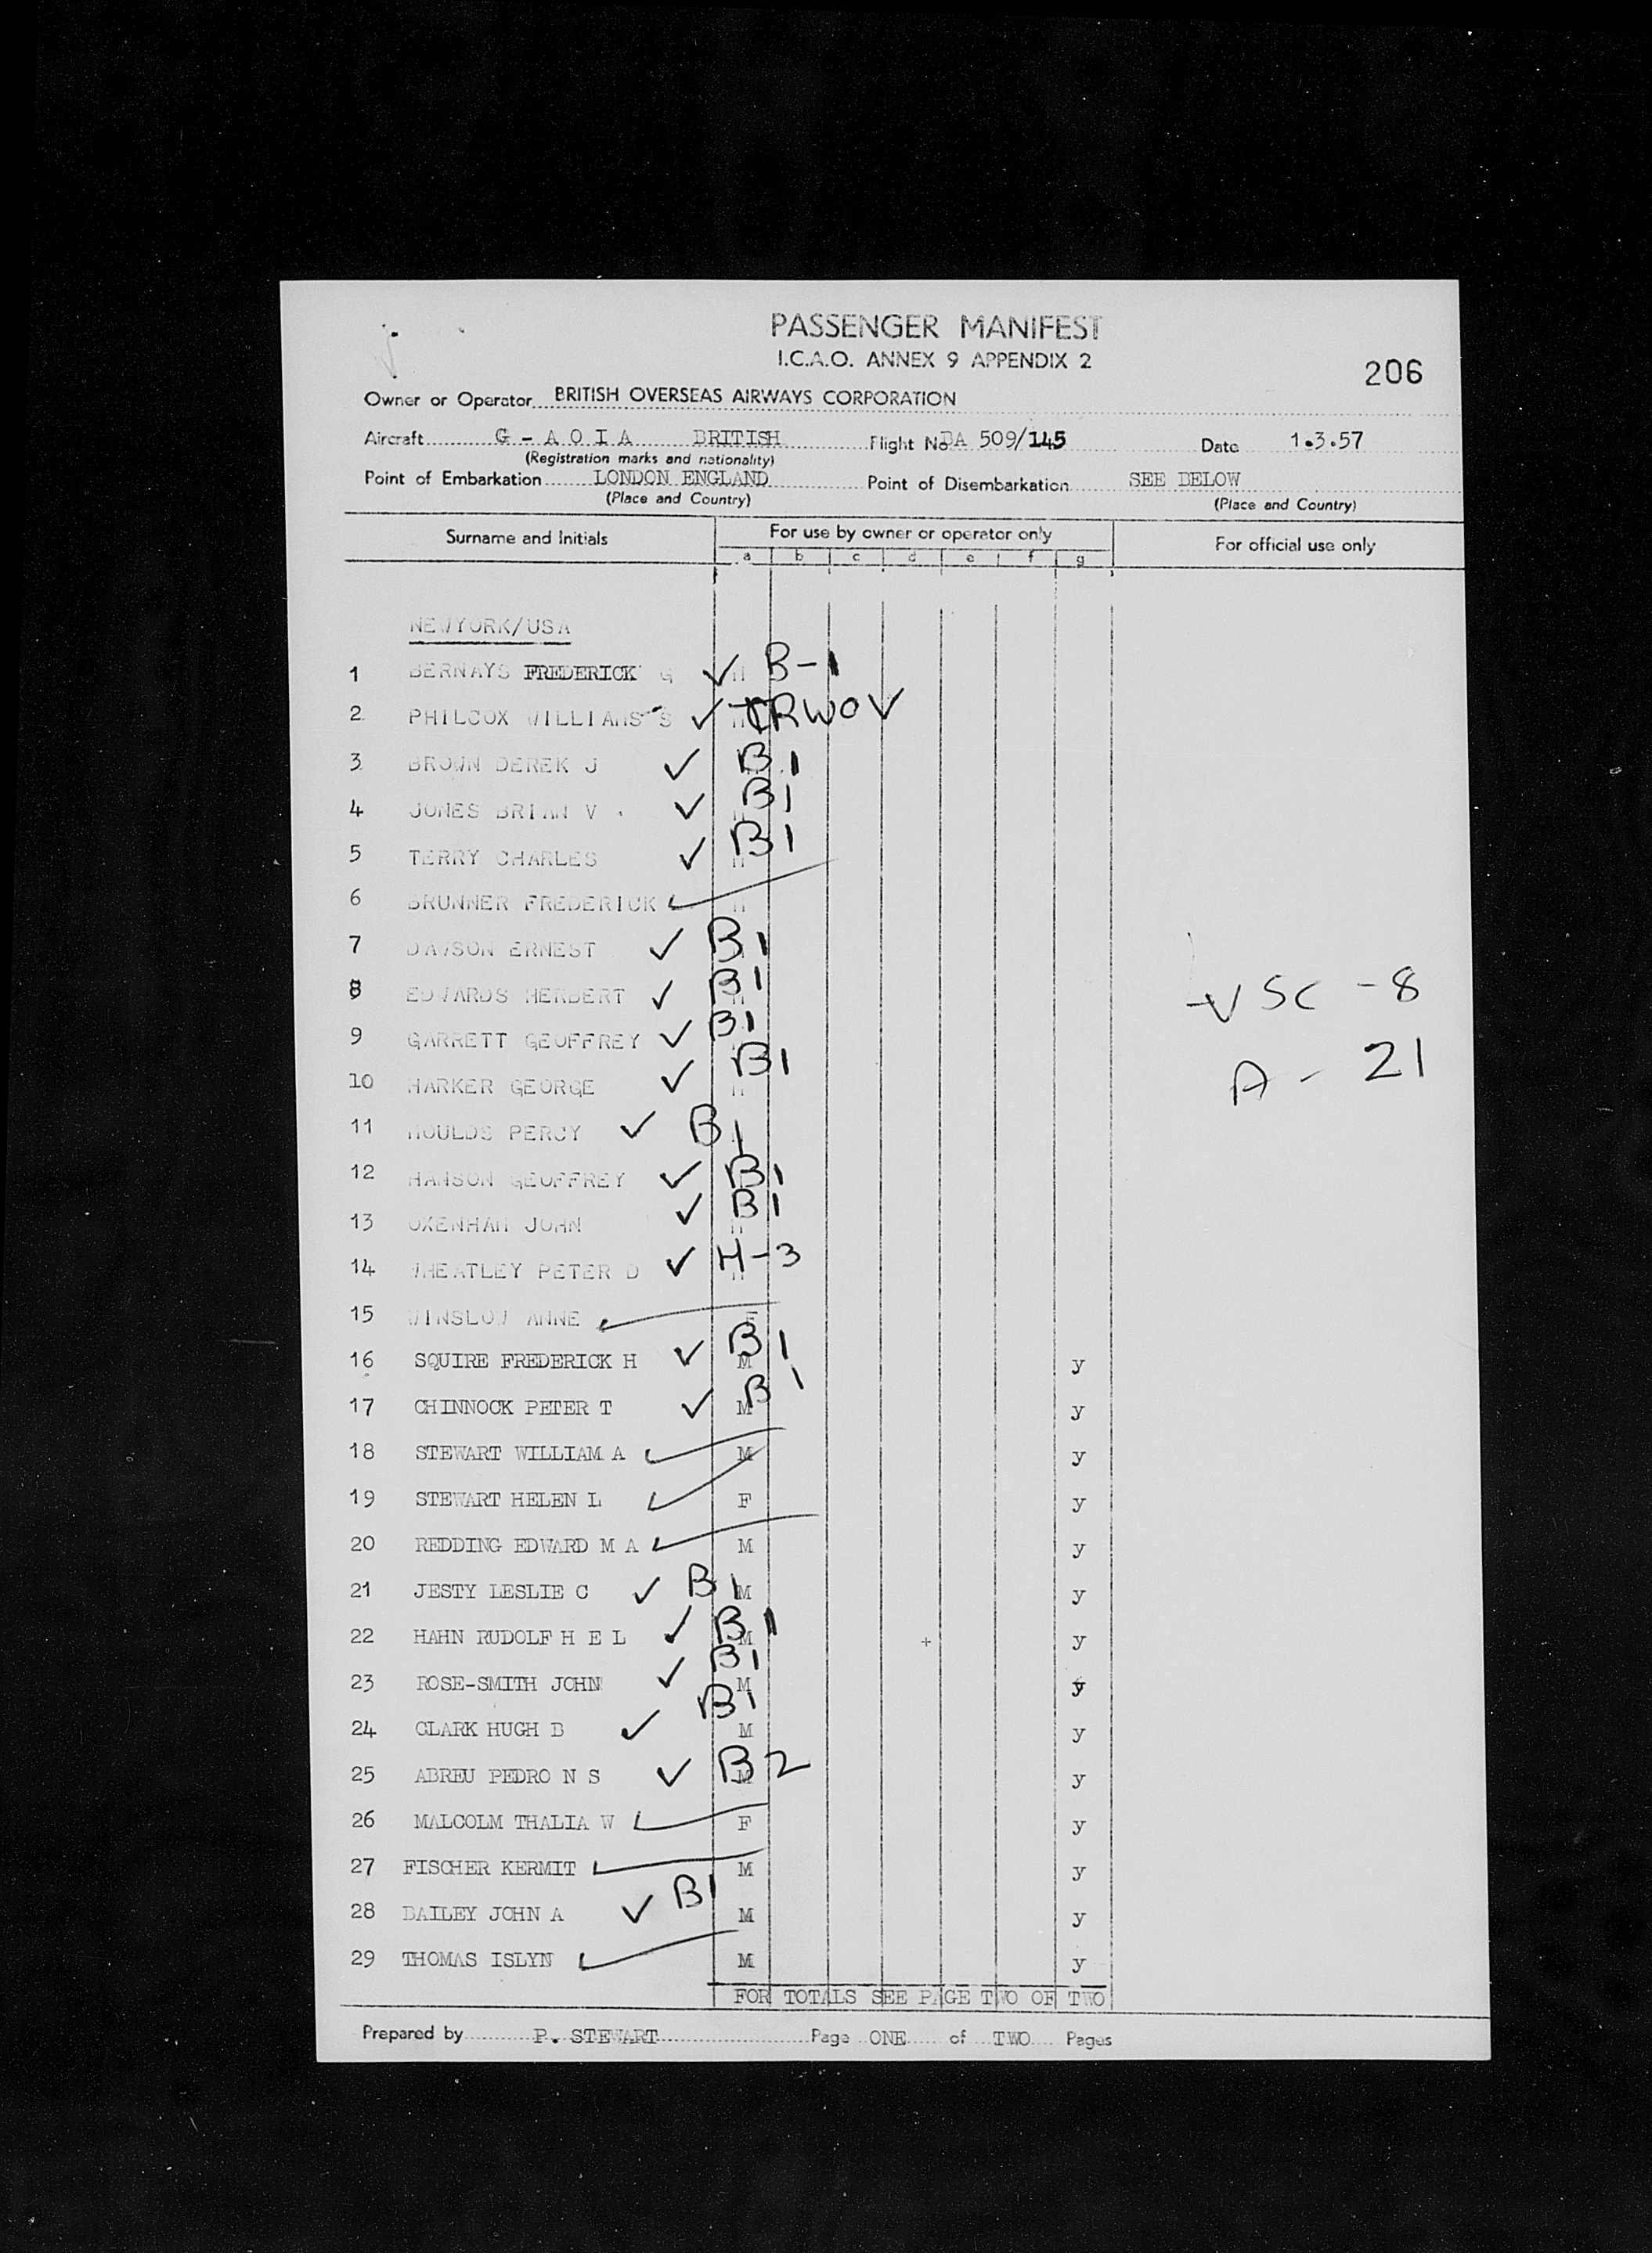 PASSENGER MANIFEST
I.C.A.O. ANNEX 9 APPENDIX 2
206
Owner or Operator BRITISH OVERSEAS AIRWAYS CORPORATION
Aircraft G - A O I A BRITISH Flight No BA 509/145 Date 1.3.57
(Registration marks and nationality)
Point of Embarkation LONDON ENGLAND Point of Disembarkation SEE BELOW
(Place and Country) (Place and Country)
Surname and Initials For use by owner or operator only For official use only
a b c d e f g
NEWYORK/USA
1 BERNAYS FREDERICK G ✓ M B-1
2 PHILCOX WILLIAMS S ✓
3 BROWN DEREK J ✓ B1
4 JONES BRIAN V ✓ M B1
5 TERRY CHARLES ✓ M B1
6 BRUNNER FREDERICK ✓ M
7 DAWSON ERNEST ✓ B1
8 EDWARDS HERBERT ✓ M B1
9 GARRETT GEOFFREY ✓ B1
10 HARKER GEORGE ✓ M B1
11 MOULDS PERCY ✓ B1
12 HANSON GEOFFREY ✓ B1
13 OXENHAM JOHN ✓ M B1
14 WHEATLEY PETER D ✓ M H-3
15 WINSLOW ANNE ✓ F
16 SQUIRE FREDERICK H ✓ M B1 y
17 CHINNOCK PETER T ✓ M B1 y
18 STEWART WILLIAM A ✓ M y
19 STEWART HELEN L ✓ F y
20 REDDING EDWARD M A ✓ M y
21 JESTY LESLIE C ✓ B1 M y
22 HAHN RUDOLF H E L ✓ B1 M + y
23 ROSE-SMITH JOHN ✓ B1 M y
24 CLARK HUGH B ✓ B1 M y
25 ABREU PEDRO N S ✓ B2 M y
26 MALCOLM THALIA W ✓ F y
27 FISCHER KERMIT ✓ M y
28 BAILEY JOHN A ✓ B1 M y
29 THOMAS ISLYN ✓ M y
VSC - 8
A - 21
FOR TOTALS SEE PAGE TWO OF TWO
Prepared by P. STEWART Page ONE of TWO Pages